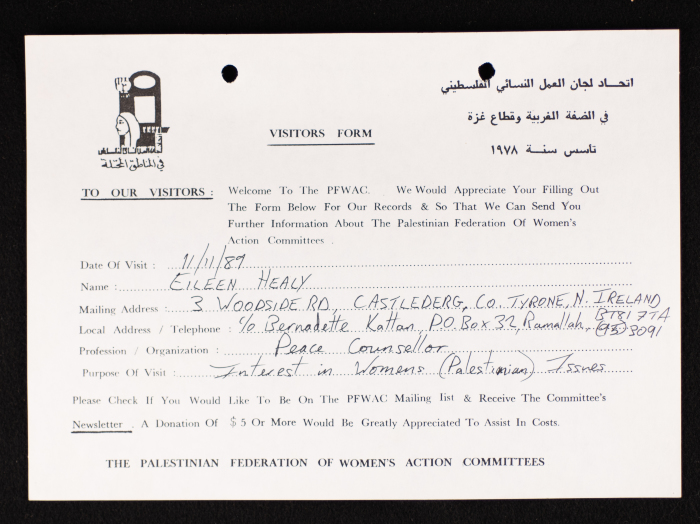 اتحاد لجان العمل النسائي الفلسطيني
في الضفة الغربية وقطاع غزة
تاسس سنة ١٩٧٨
في المناطق المحتلة
VISITORS FORM
TO OUR VISITORS : Welcome To The PFWAC. We Would Appreciate Your Filling Out
The Form Below For Our Records & So That We Can Send You
Further Information About The Palestinian Federation Of Women's
Action Committees .
Date Of Visit : 11/11/89
Name : EILEEN HEALY
Mailing Address : 3 WOODSIDE RD, CASTLEDERG, Co. TYRONE, N. IRELAND
BT81 7TA
Local Address / Telephone : c/o Bernadette Kattan, P.O. Box 32, Ramallah, (95) 3091
Profession / Organization : Peace Counsellor
Purpose Of Visit : Interest in Womens (Palestinian) Issues
Please Check If You Would Like To Be On The PFWAC Mailing list & Receive The Committee's
Newsletter . A Donation Of $ 5 Or More Would Be Greatly Appreciated To Assist In Costs.
THE PALESTINIAN FEDERATION OF WOMEN'S ACTION COMMITTEES